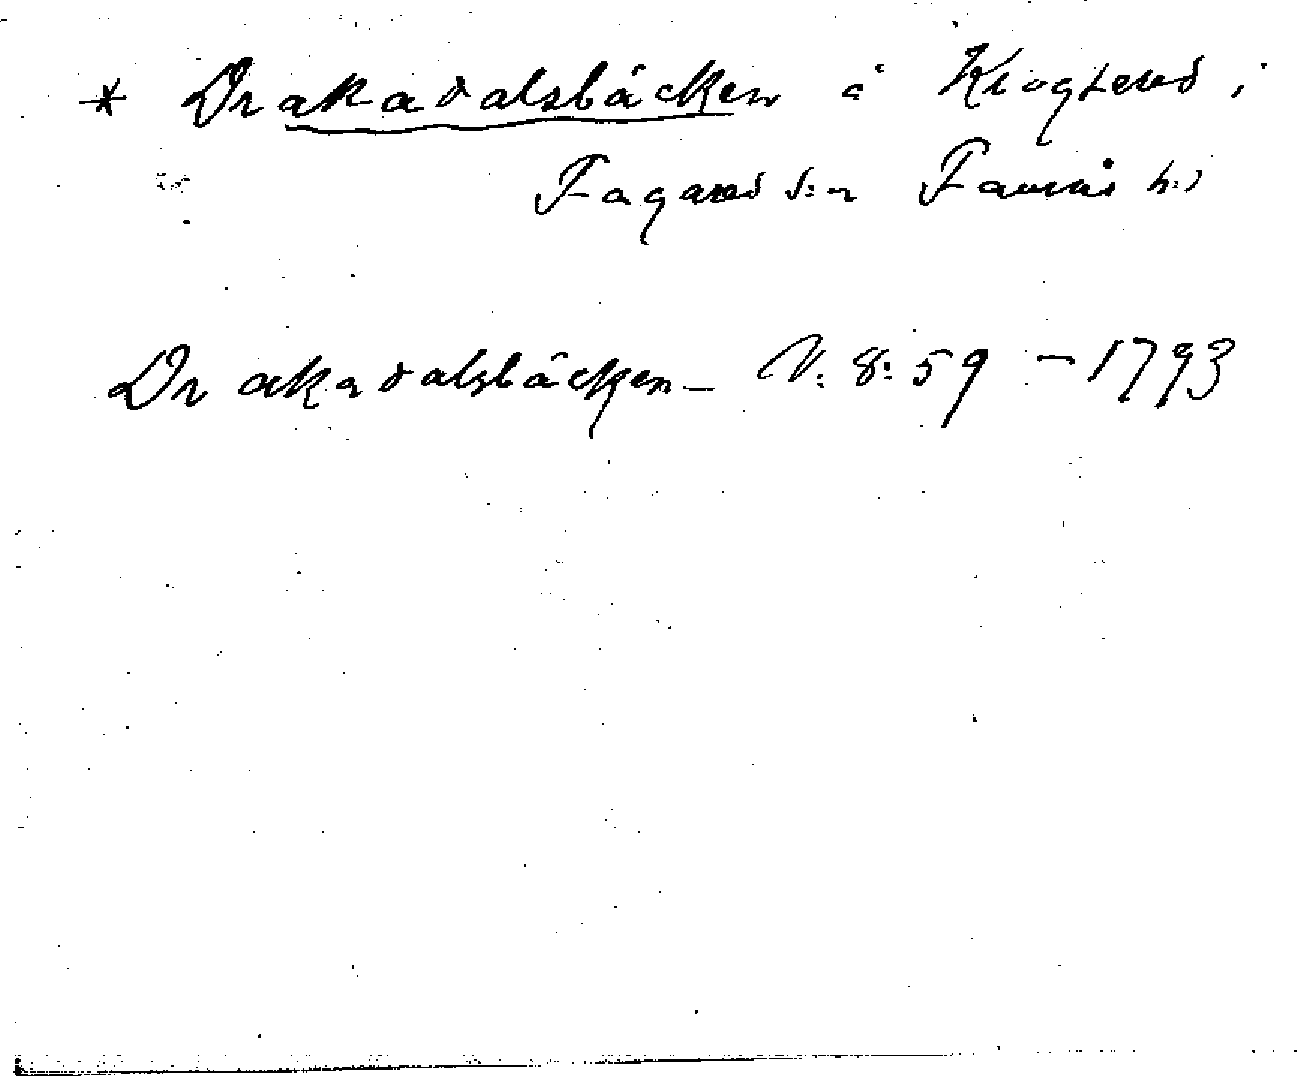 * Drakadalsbäcken å Krogsered i
Fagared s:n Faurås h:d
Drakadalsbäcken – N: 8: 59 – 1793